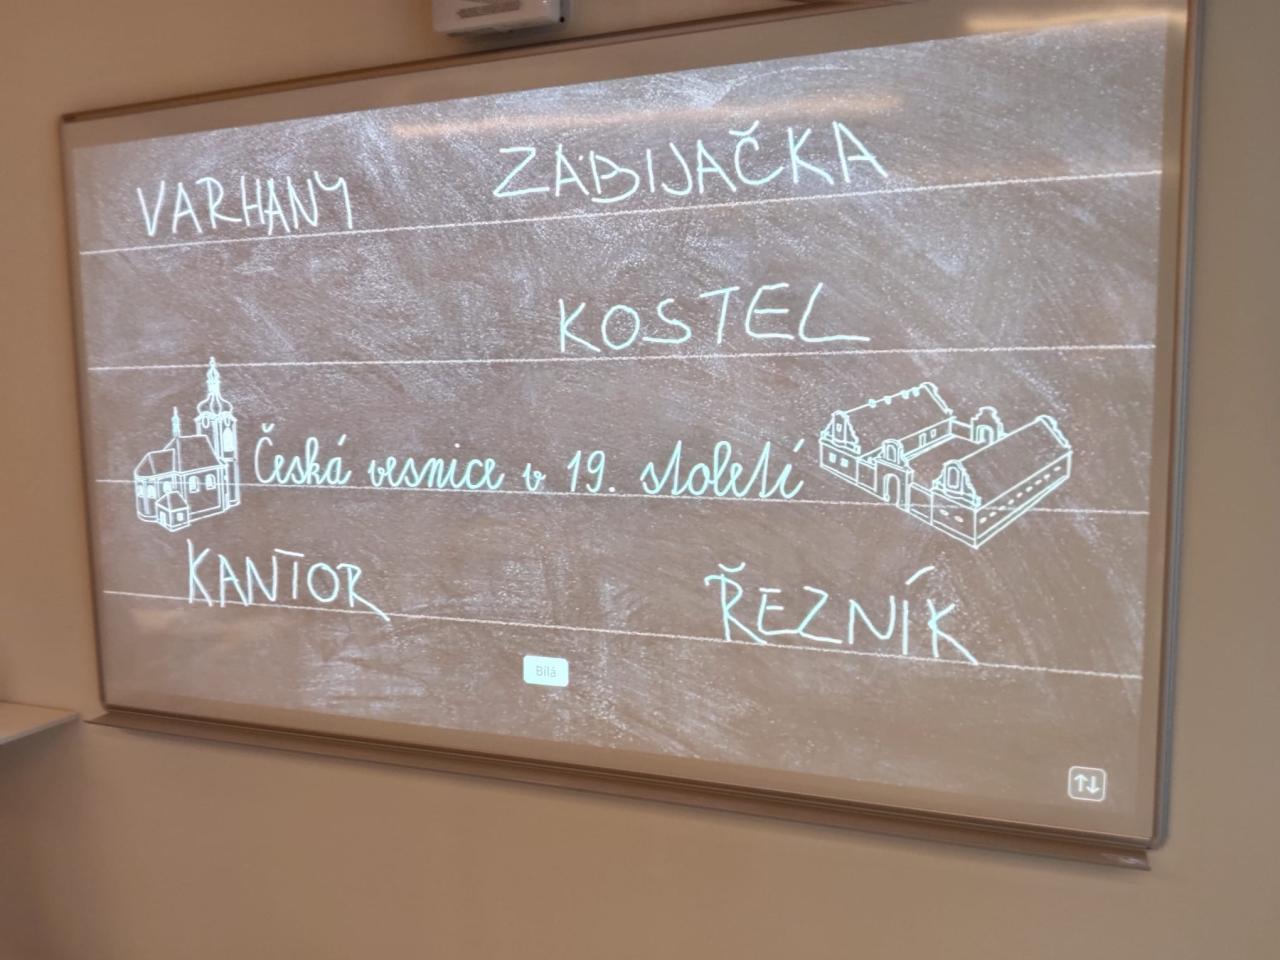 VARHANY ZABIJAČKA
KOSTEL
Česká vesnice v 19. století
KANTOR ŘEZNÍK
Bílá